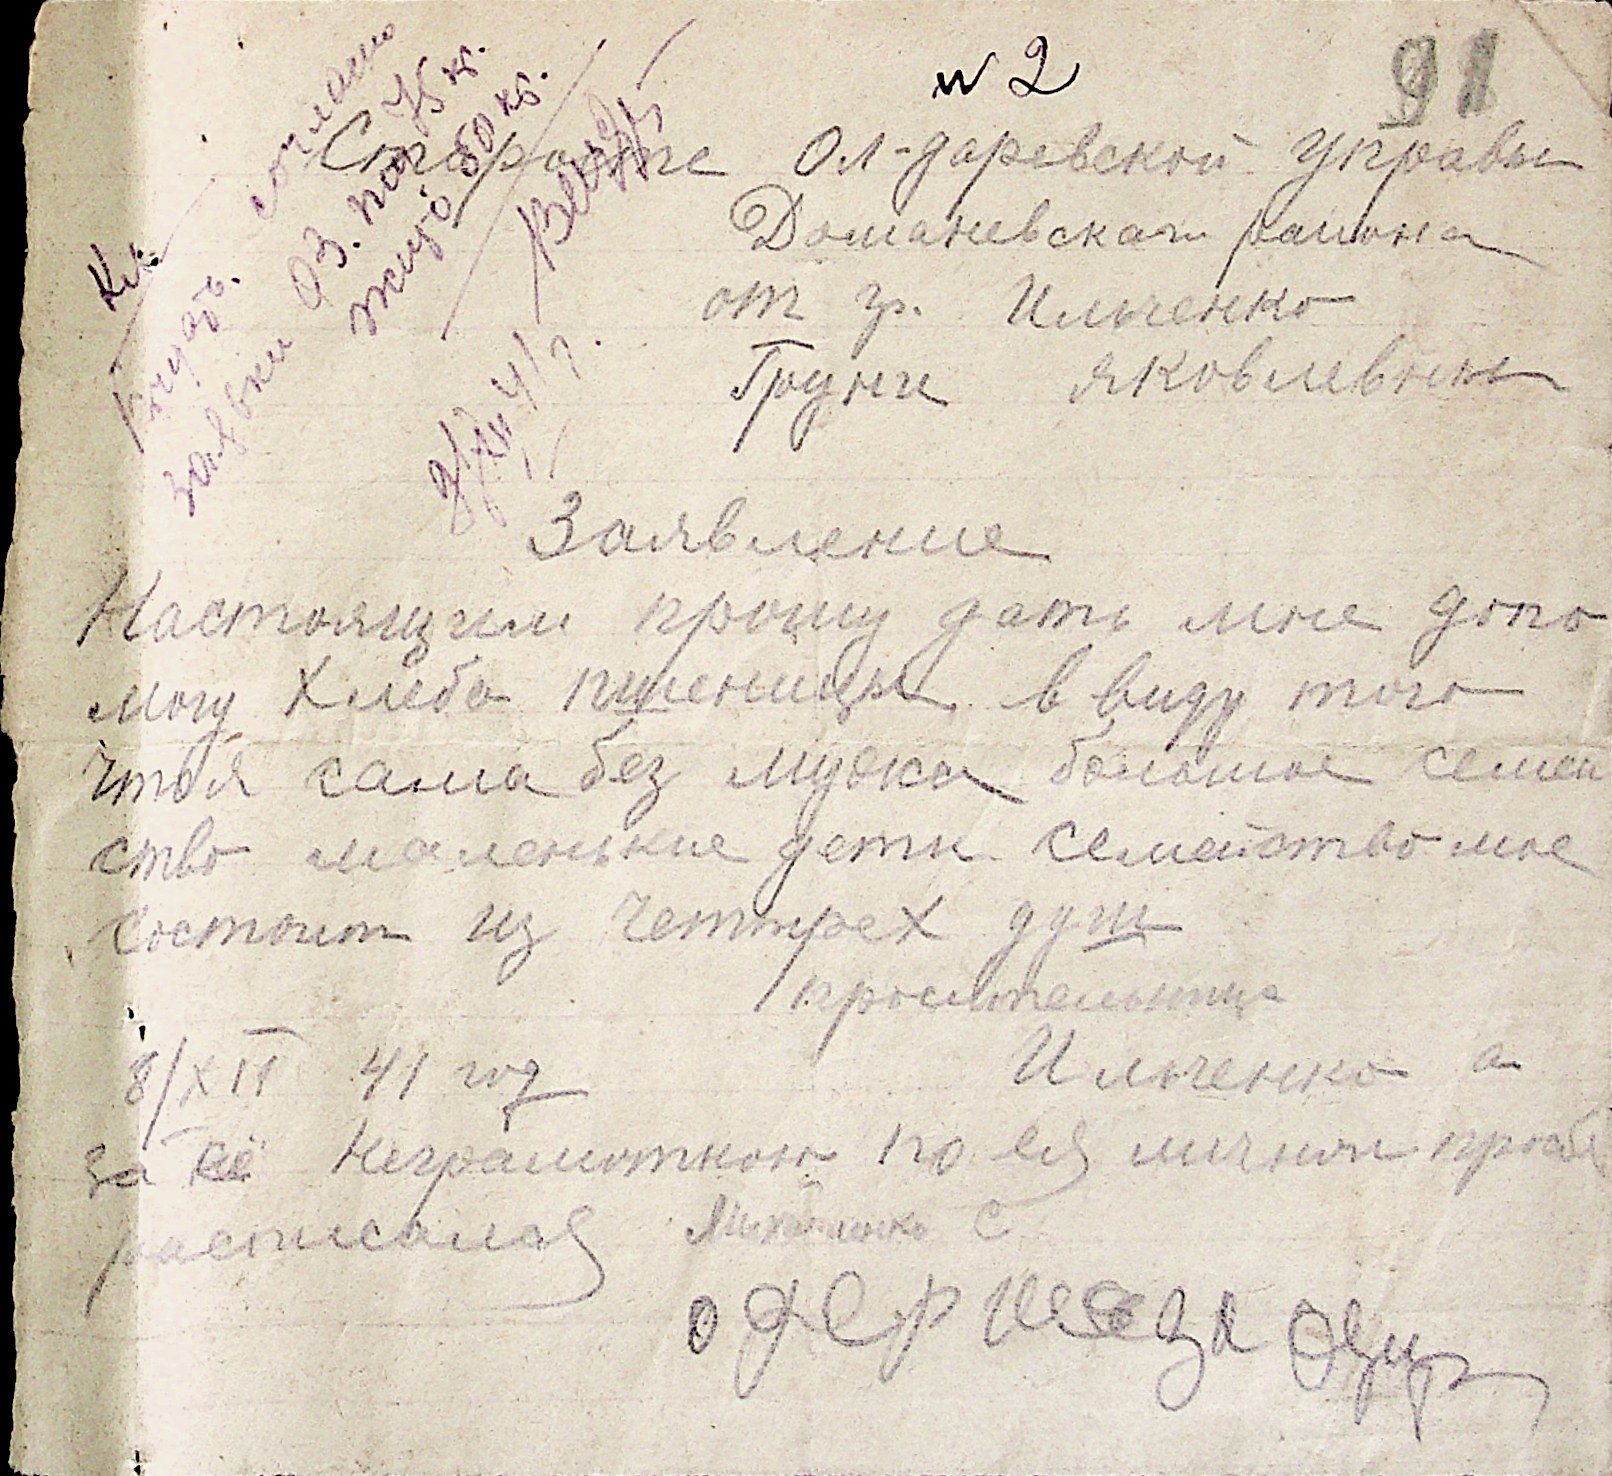 № 2
91
Старосте Ол-даревской управы
Доманевскаги района
от гр. Ильченко
Груни Яковлевны
Кл.
Выдать согласно
заявки оз. пол 75 кг.
жито 50 кг.
8/XII 41 г.
Заявление
Настоящим прошу дать мне допо
могу хлеба пшеницы в виду того
что я сама без мужа большое семей
ство маленькие дети семейство мое
состоит из четырех душ
просительница
8/XII 41 год Ильченко а
за неё неграмотною по ея личной прозбе
расписалас С